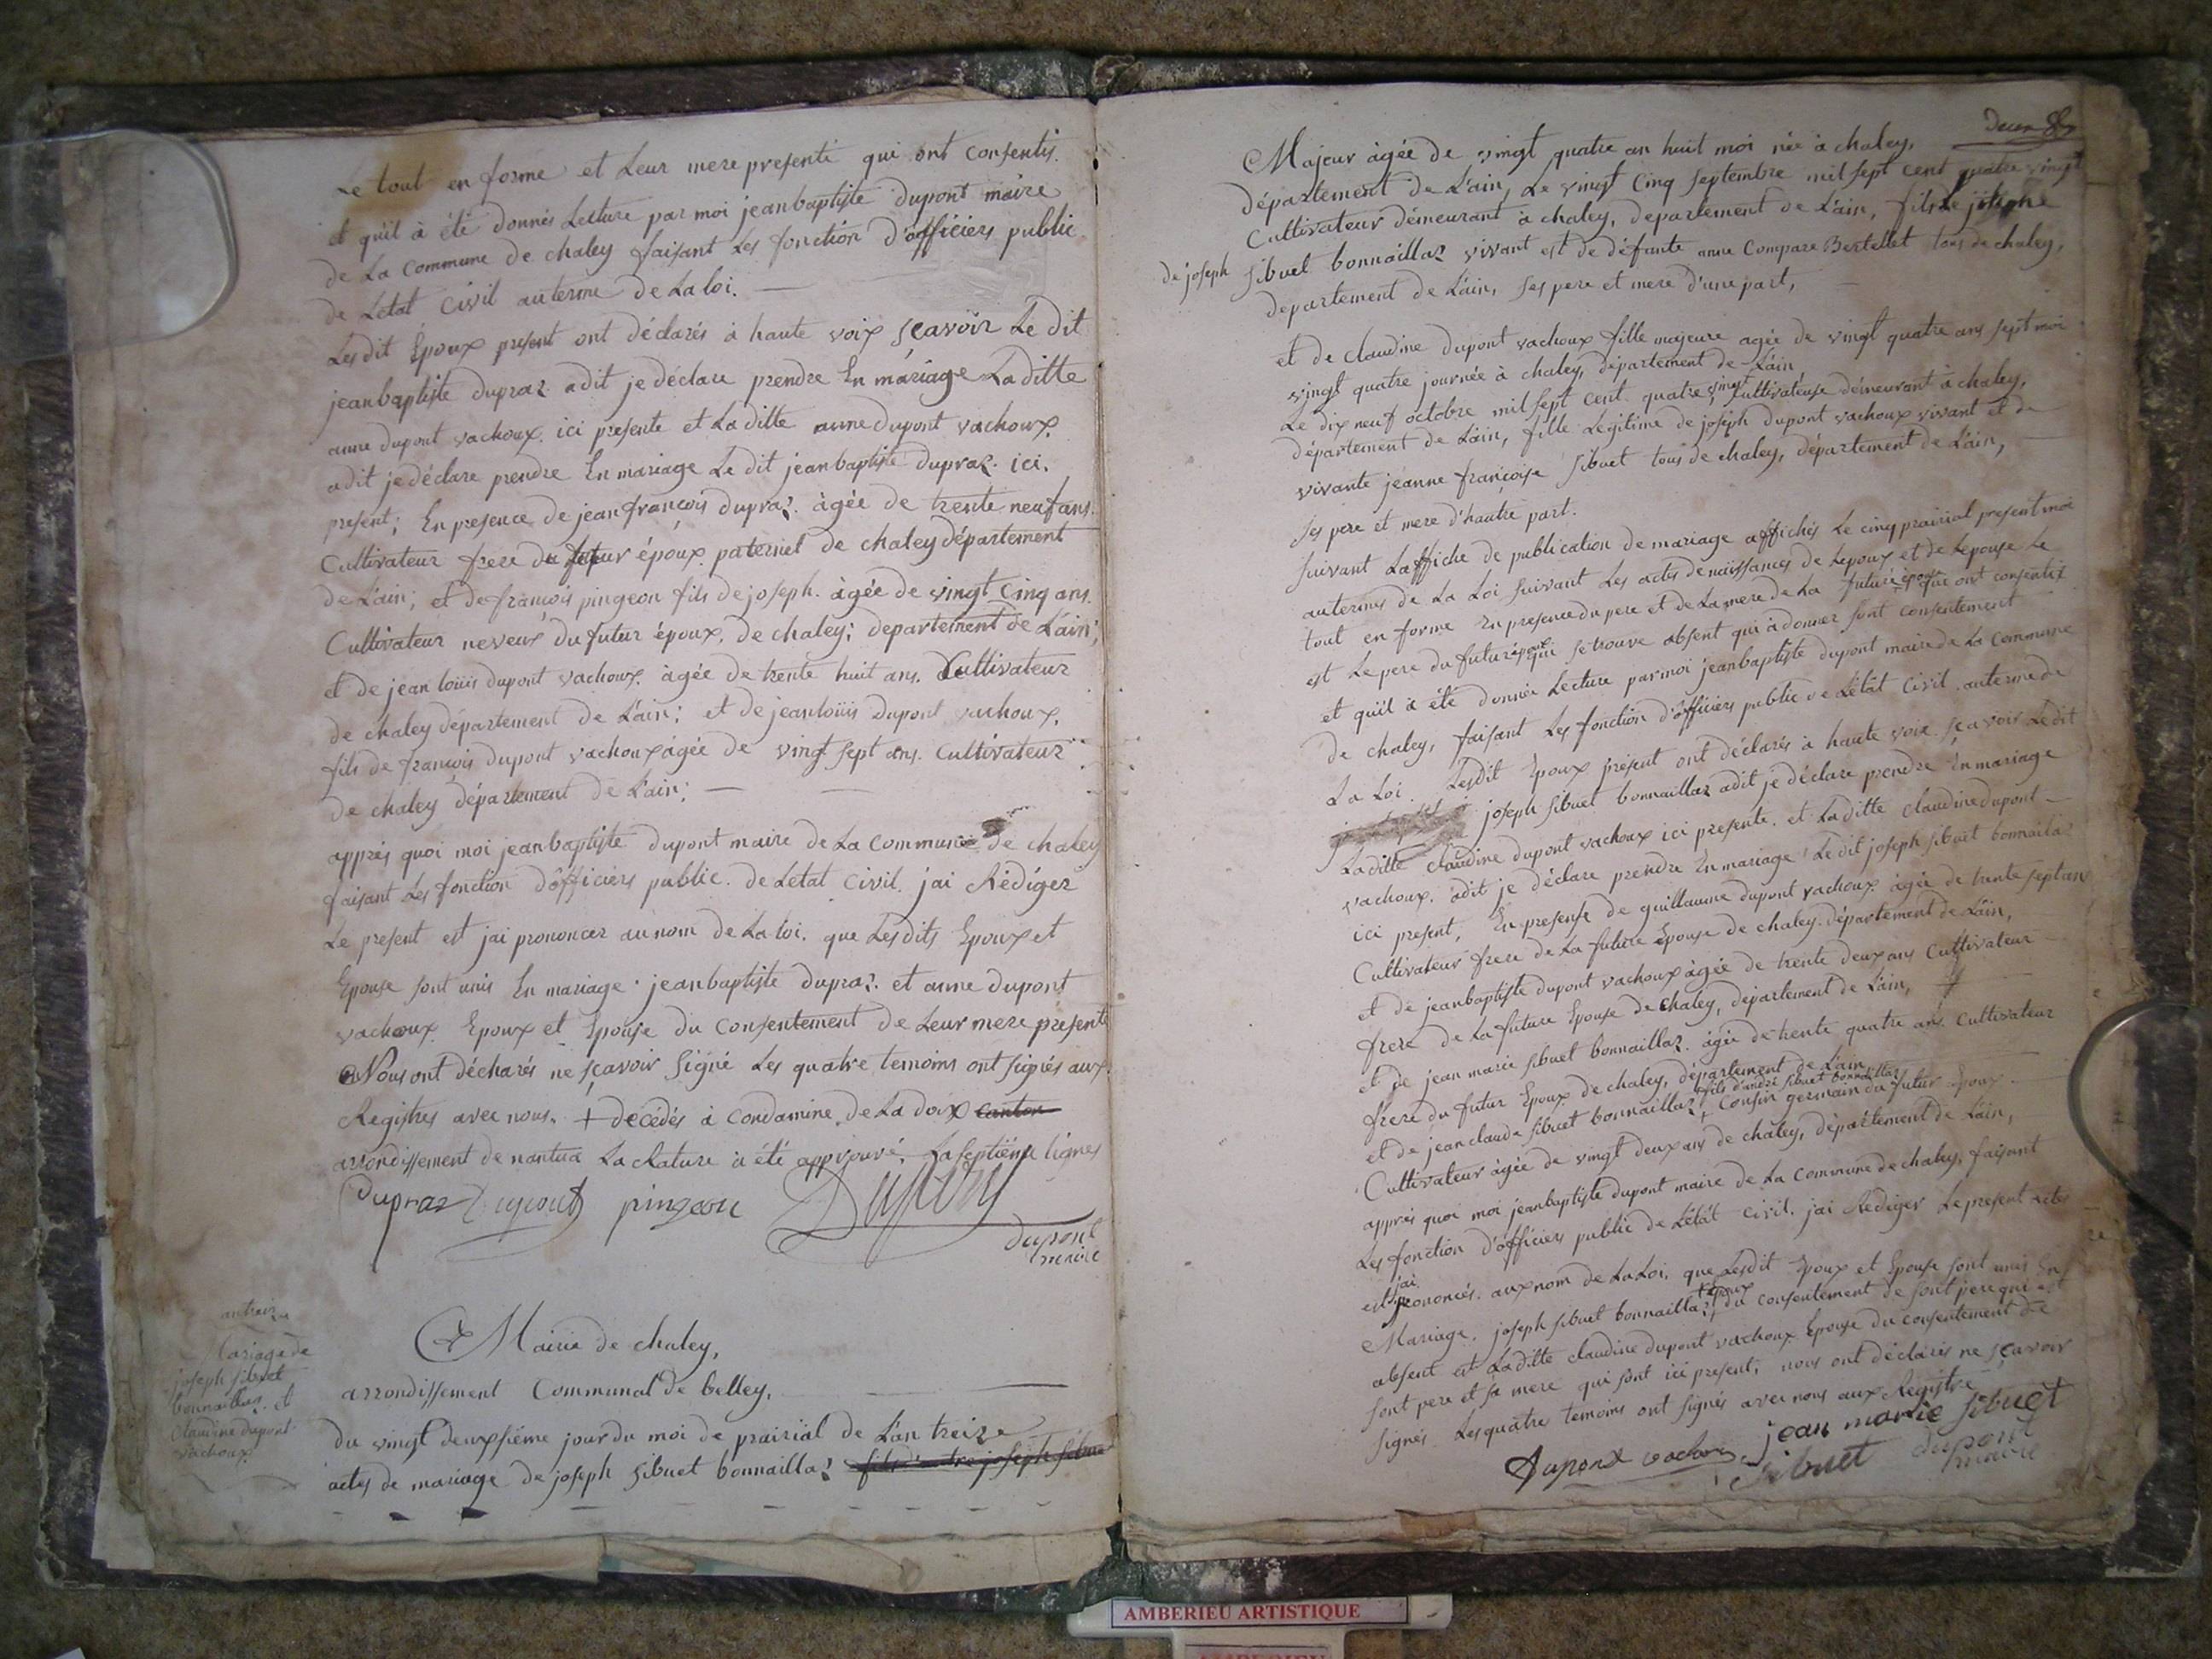 Le tout en forme et Leur mere presente qui ont consentis.
et quil à été donnés Lecture par moi jeanbaptiste dupont maire
de La commune de chaley faisant Les fonction d'officiers public
de Letat civil auterme de La loi. —
Les dit Epoux present ont déclarés à haute voix sçavoir Le dit
jeanbaptiste dupraz adit je déclare prendre En mariage La ditte
anne dupont vachoux. ici presente et La ditte anne dupont vachoux.
adit je déclare prendre En mariage Le dit jeanbaptiste dupraz. ici.
present; En presence de jeanfrançois dupraz. âgée de trente neuf ans.
Cultivateur frere du futur époux. paternel de chaley département
de L'ain; et de françois pingeon fils de joseph. âgée de vingt Cinq ans.
Cultivateur neveux du futur époux. de chaley; departement de L'ain;
et de jean louis dupont vachoux. âgée de trente huit ans. Cultivateur
de chaley département de L'ain; et de jeanlouis dupont vachoux.
fils de françois dupont vachoux âgée de vingt sept ans. Cultivateur
de chaley département de L'ain; —
apprés quoi moi jeanbaptiste dupont maire de La commune de chaley
faisant Les fonction d'officiers public. de Letat civil. jai Rédiger
Le present est jai prononcer au nom de La loi. que Lesdits Epoux et
Epouse sont unis En mariage. jeanbaptiste dupraz. et anne dupont
vachoux Epoux et Epouse du consentement de Leur mere presente
Nous ont décharés ne sçavoir signé Les quatre temoins ont signés aux
Registres avec nous. + décédés à condamine de La doix canton
arrondissement de nantua La Rature à été approuvé. La septième lignes
dupraz dupont pingeon
dupont
maire
an treize
Mariage de
joseph sibuet
bonnaillaz et
claudine dupont
vachoux
Mairie de chaley,
arrondissement Communal de belley,
du vingt deuxsiéme jour du moi de prairial de L'an treize
actes de mariage de joseph sibuet bonnaillaz
Majeur âgée de vingt quatre an huit moi née à chaley,
département de L'ain, Le vingt Cinq septembre mil sept cent quatre vingt
Cultivateur démeurant à chaley, departement de L'ain, fils de josephe
de joseph sibuet bonnaillaz vivant est de défunte anne Compare Bertellet tous de chaley,
departement de L'ain, ses pere et mere d'une part,
et de claudine dupont vachoux fille majeure agée de vingt quatre ans sept moi
vingt quatre journée à chaley, département de L'ain,
Le dix neuf octobre mil sept cent quatre vingt Cultivateuse démeurant à chaley,
département de L'ain, fille Légitime de joseph dupont vachoux vivant et de
vivante jeanne françoise sibuet tous de chaley, département de L'ain,
ses pere et mere d'hautre part.
suivant L'affiche de publication de mariage affichés Le cinq prairial present moi
autermes de La Loi suivant Les actes de naissances de Lepoux et de Lepouse Le
tout en forme En presence du pere et de La mere de La future épouse qui ont consentis
est Lepere du futur époux qui se trouve absent qui à donner sont consentement
et quil à été donnée Lecture par moi jeanbaptiste dupont maire de La commune
de chaley, faisant Les fonction d'officiers public de L'état Civil auterme de
La Loi. Lesdit Epoux présent ont déclarés à haute voix sçavoir Ledit
joseph sibuet bonnaillaz adit je déclare prendre En mariage
Laditte claudine dupont vachoux ici presente. et La ditte claudine dupont
vachoux. àdit je déclare prendre En mariage Le dit joseph sibuet bonnaillaz
ici present, En presense de guillaume dupont vachoux âgée de trente sept ans
Cultivateur frere de La future Epouse de chaley. département de L'ain,
et de jeanbaptiste dupont vachoux âgée de trente deux ans Cultivateur
frere de La future Epouse de chaley, département de L'ain,
et de jean marie sibuet bonnaillaz. âgée de trente quatre ans Cultivateur
frere du futur Epoux de chaley, département de L'ain,
et de jean claude sibuet bonnaillaz + fils d'andré sibuet bonnaillaz Consin germain du futur Epoux
Cultivateur âgée de vingt deux ans de chaley, département de L'ain,
apprés quoi moi jeanbaptiste dupont maire de La Commune de chaley, faisant
Les fonction d'officiers public de L'état civil. jai Rédiger Le present actes
est jai prononcés. aux nom de La Loi. que Lesdit Epoux et Epouse sont unis En
Mariage. joseph sibuet bonnaillaz, époux du consentement de sont pere qui est
absent est Laditte claudine dupont vachoux Epouse du consentement de
sont pere et sa mere qui sont ici present, nous ont déclarés ne sçavoir
signés Les quatre temoins ont signés avec nous aux Registre
dupont vachoux jean marie sibuet
sibuet dupont
maire
AMBERIEU ARTISTIQUE